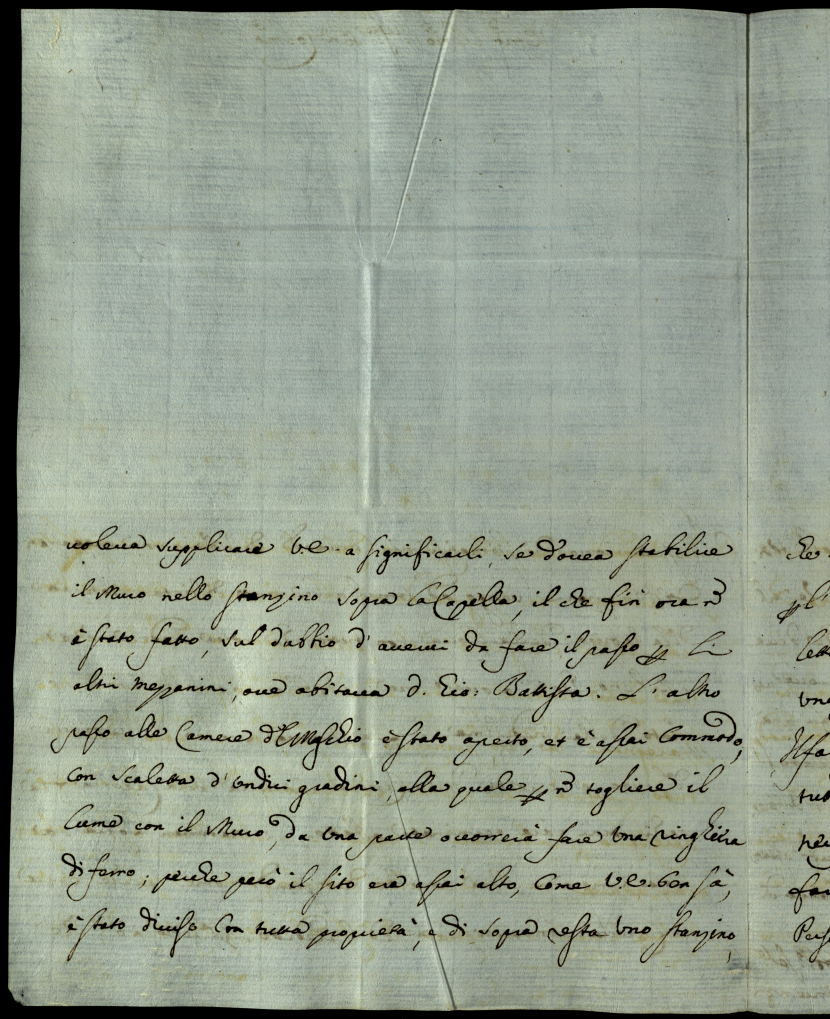 voleva supplicare V.E. a significarli, se dovea stabilire
il Muro nello stanzino sopra la Capella, il che fin ora ñ
è stato fatto, sul dubbio d'avervi da fare il passo ꝑ li
altri mezzanini, ove abitava D. Gio: Battista. L'altro
passo alle Camere è stato aperto, et è assai Commodo,
con scaletta d'undici gradini, alla quale ꝑ ñ togliere il
lume con il Muro, da una parte occorrerà fare una ringhiera
di ferro; perche però il sito era assai alto, come V.E. ben sà,
è stato diviso con tutta proprietà, e di sopra resta uno stanzino,
che
ꝑ l'
una